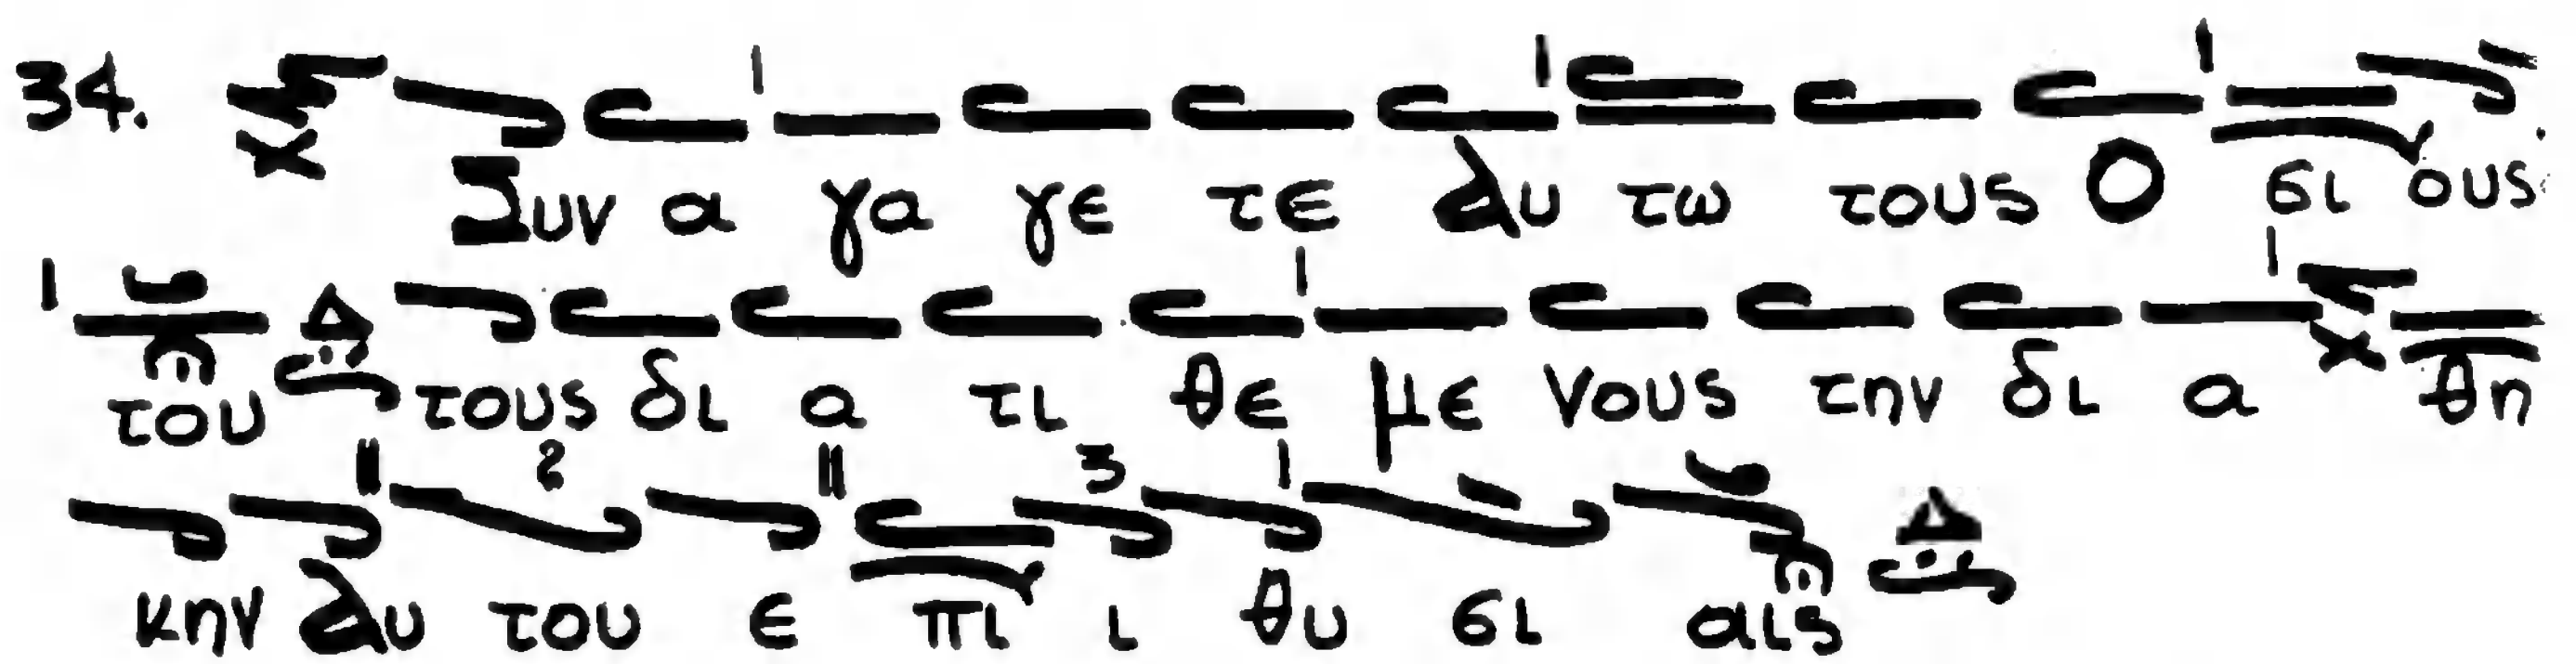 34. Συν α γα γε τε αυ τω τους Ο σι ους
του Δ τους δι α τι θε με νους την δι α θη
κην αυ του ε πι ι θυ σι αις Δ